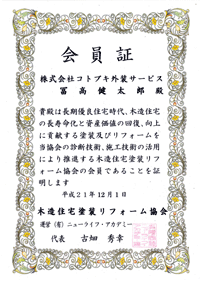 会員証
株式会社コトブキ外装サービス
冨高健太郎 殿
貴殿は長期優良住宅時代、木造住宅
の長寿命化と資産価値の回復、向上
に貢献する塗装及びリフォームを
当協会の診断技術、施工技術の活用
により推進する木造住宅塗装リフ
ォーム協会の会員であることを証
明します
平成21年12月1日
木造住宅塗装リフォーム協会
運営（有）ニューライフ・アカデミー
代表 古畑 秀幸